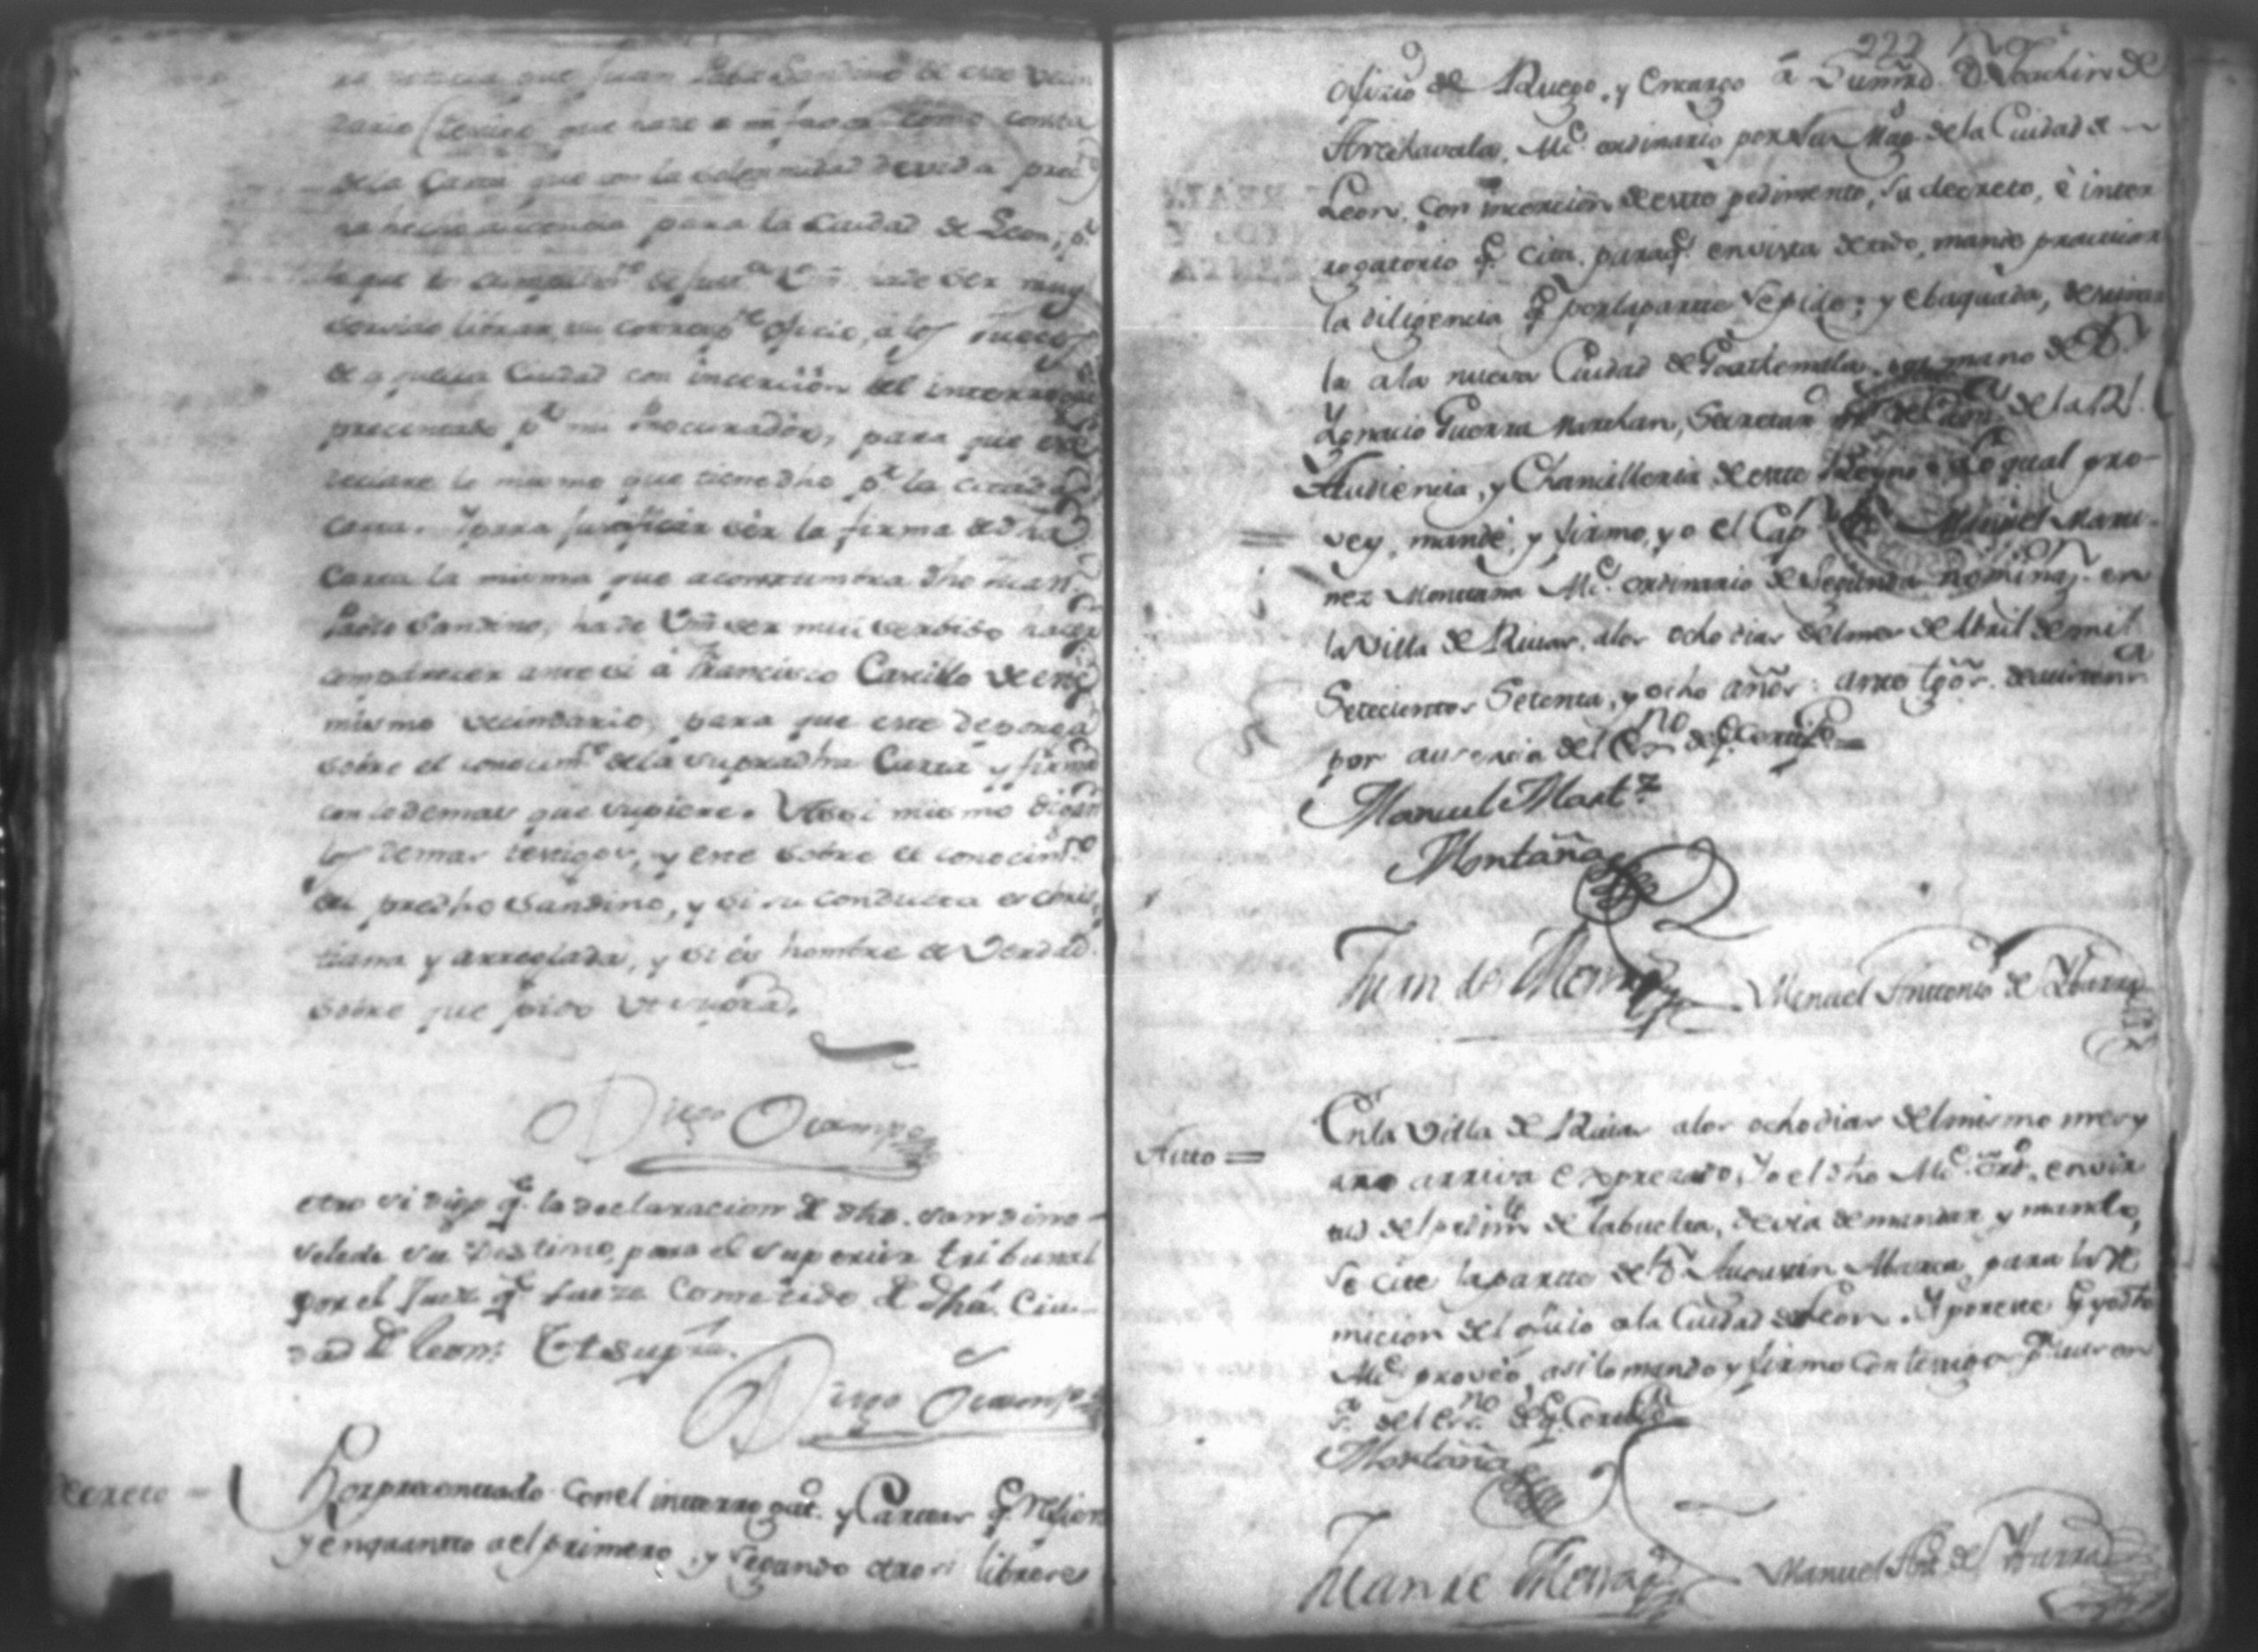 que Juan Pablo Sandino de este vecin
dario (testigo que hace a mi favor como consta
de la Carta que con la solemnidad devida precento
ha hecho ausencia para la Ciudad de Leon, pr
lo que ha de ser muy
servido librar su correspte oficio, a los Jueces
de aquella Ciudad con incerción del interrogato
precentado pr mi Procurador, para que este
declare lo mismo que tiene dho pr la citada
carta. Y para justificar ser la firma de dha
Carta la misma que acostumbra dho Juan
Pablo Sandino, ha de Vm ser mui servido hacer
comparecer ante si á Francisco Carrillo de este
mismo vecindario, para que este deponga
sobre el conocimto de la supradha Carta y firma
con lo demas que supiere. Y assi mismo digan
los demas testigos, y este sobre el conocimto
del predho Sandino, y si su conducta es cris
tiana y arreglada, y si es hombre de Verdad.
sobre que pido Ut supra.
Diego Ocampo
otro si digo q. la declaracion d dho. Sandino
se le de su Destino, para el Superior tribunal
por el Juez q. fuere Cometido d dha. Ciu-
dad d Leon: Ut supra.
Diego Ocampo
Decreto =
Por precentado con el interrogat. y Cartas q. refiere
y en quantto a el primero, y segundo otro si librese
222
oficio de Ruego, y Encargo á Sumrd. Dn Joachin de
Arechavala, Alce. ordinario por Su Mag. de la Ciudad de
Leon, Con incercion de este pedimento, Su decreto, è inter
rogatorio q. Cita. paraq. en vista de todo, mande practicar
la diligencia q. por la partte se pide; y ebaquada, de
la a la nueva Ciudad de Goathemala, por mano de Dn
Ygnacio Guerra Marchan, Secretar de Cam de la Rl.
Audiencia, y Chancilleria de este Reyno. Lo qual pro-
vey, mandé, y firmo, yo el Capn Dn Manuel Marti-
nez Montaña Alce. ordinario de Segunda nominazon en
la Villa de Rivas, a los ocho dias del mes de Abril de mil
Setecientos Setenta, y ocho años: antte tgos. de asistencia
por ausencia del Esno de q. Certifico =
Manuel Martz
Montaña
Juan de Mena
Manuel Anttonio de Ybarra
Autto =
En la Villa de Rivas a los ocho dias del mismo mes y
año arriva expresado, Yo el dho Alce. ord. en vir
tud del pedimto de la buelta, devia de mandar y mando,
se cite la partte de Dn Augustin Abarca, para la re
micion del oficio a la Ciudad de Leon. Y por este q. yo dho
Alce proveo, asi lo mando y firmo con testigos
pr del esno de q. Certifico =
Montaña
Juan de Mena
Manuel Antt. de Ybarra